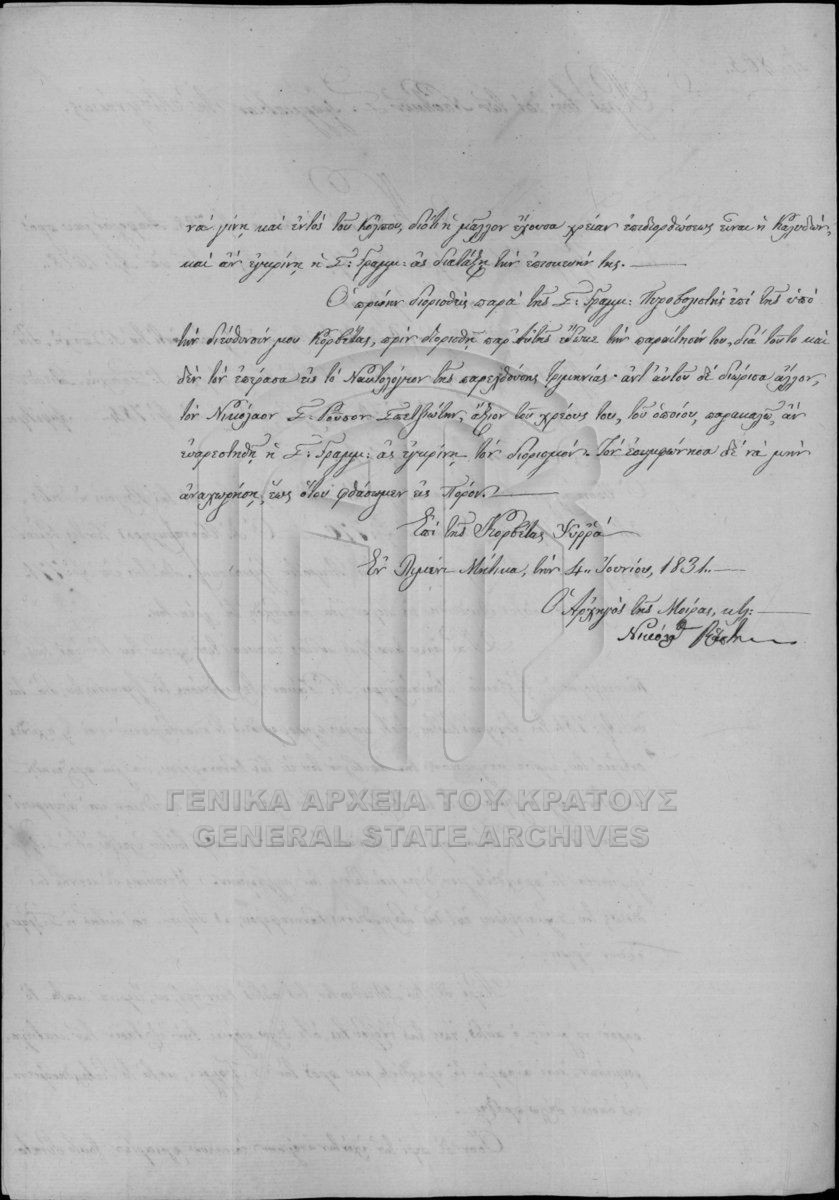 νὰ γίνῃ καὶ ἐντὸς τοῦ Κόλπου, διότι ἡ μᾶλλον ἔχουσα χρείαν ἐπιδιορθώσεως εἶναι ἡ Καλυδών,
καὶ ἂν ἐγκρίνῃ ἡ Σ: Γραμμ: ἂς διατάξῃ τὴν ἐπισκευήν της.
Ὁ πρώην διορισθεὶς παρὰ τῆς Σ: Γραμμ: Πυροβολιστὴς ἐπὶ τῆς ὑπὸ
τὴν διεύθυνσίν μου Κορβέτας, πρὶν διορισθῇ παρ' αὐτῆς ἔδωκε τὴν παραίτησίν του, διὰ τοῦτο καὶ
δὲν τὸν ἐπέρασα εἰς τὸ Ναυτολόγιον τῆς παρελθούσης τριμηνίας· ἀντ' αὐτοῦ δὲ διώρισα ἄλλον,
τὸν Νικόλαον Γ: Σπετζιώτην, ἄξιον τοῦ χρέους του, τοῦ ὁποίου, παρακαλῶ, ἂν
εὐαρεστηθῇ ἡ Σ: Γραμμ: ἂς ἐγκρίνῃ τὸν διορισμόν. Τὸν ἐσυμφώνησα δὲ νὰ μὴν
ἀναχωρήσῃ, ἕως ὅτου φθάσωμεν εἰς Πόρον.
Ἐπὶ τῆς Κορβέτας Ψυρρᾶ
Ἐν Λιμένι Μύτικα, τὴν 4 Ἰουνίου, 1831.
Ὁ Ἀρχηγὸς τῆς Μοίρας, κτλ:
ΓΕΝΙΚΑ ΑΡΧΕΙΑ ΤΟΥ ΚΡΑΤΟΥΣ
GENERAL STATE ARCHIVES